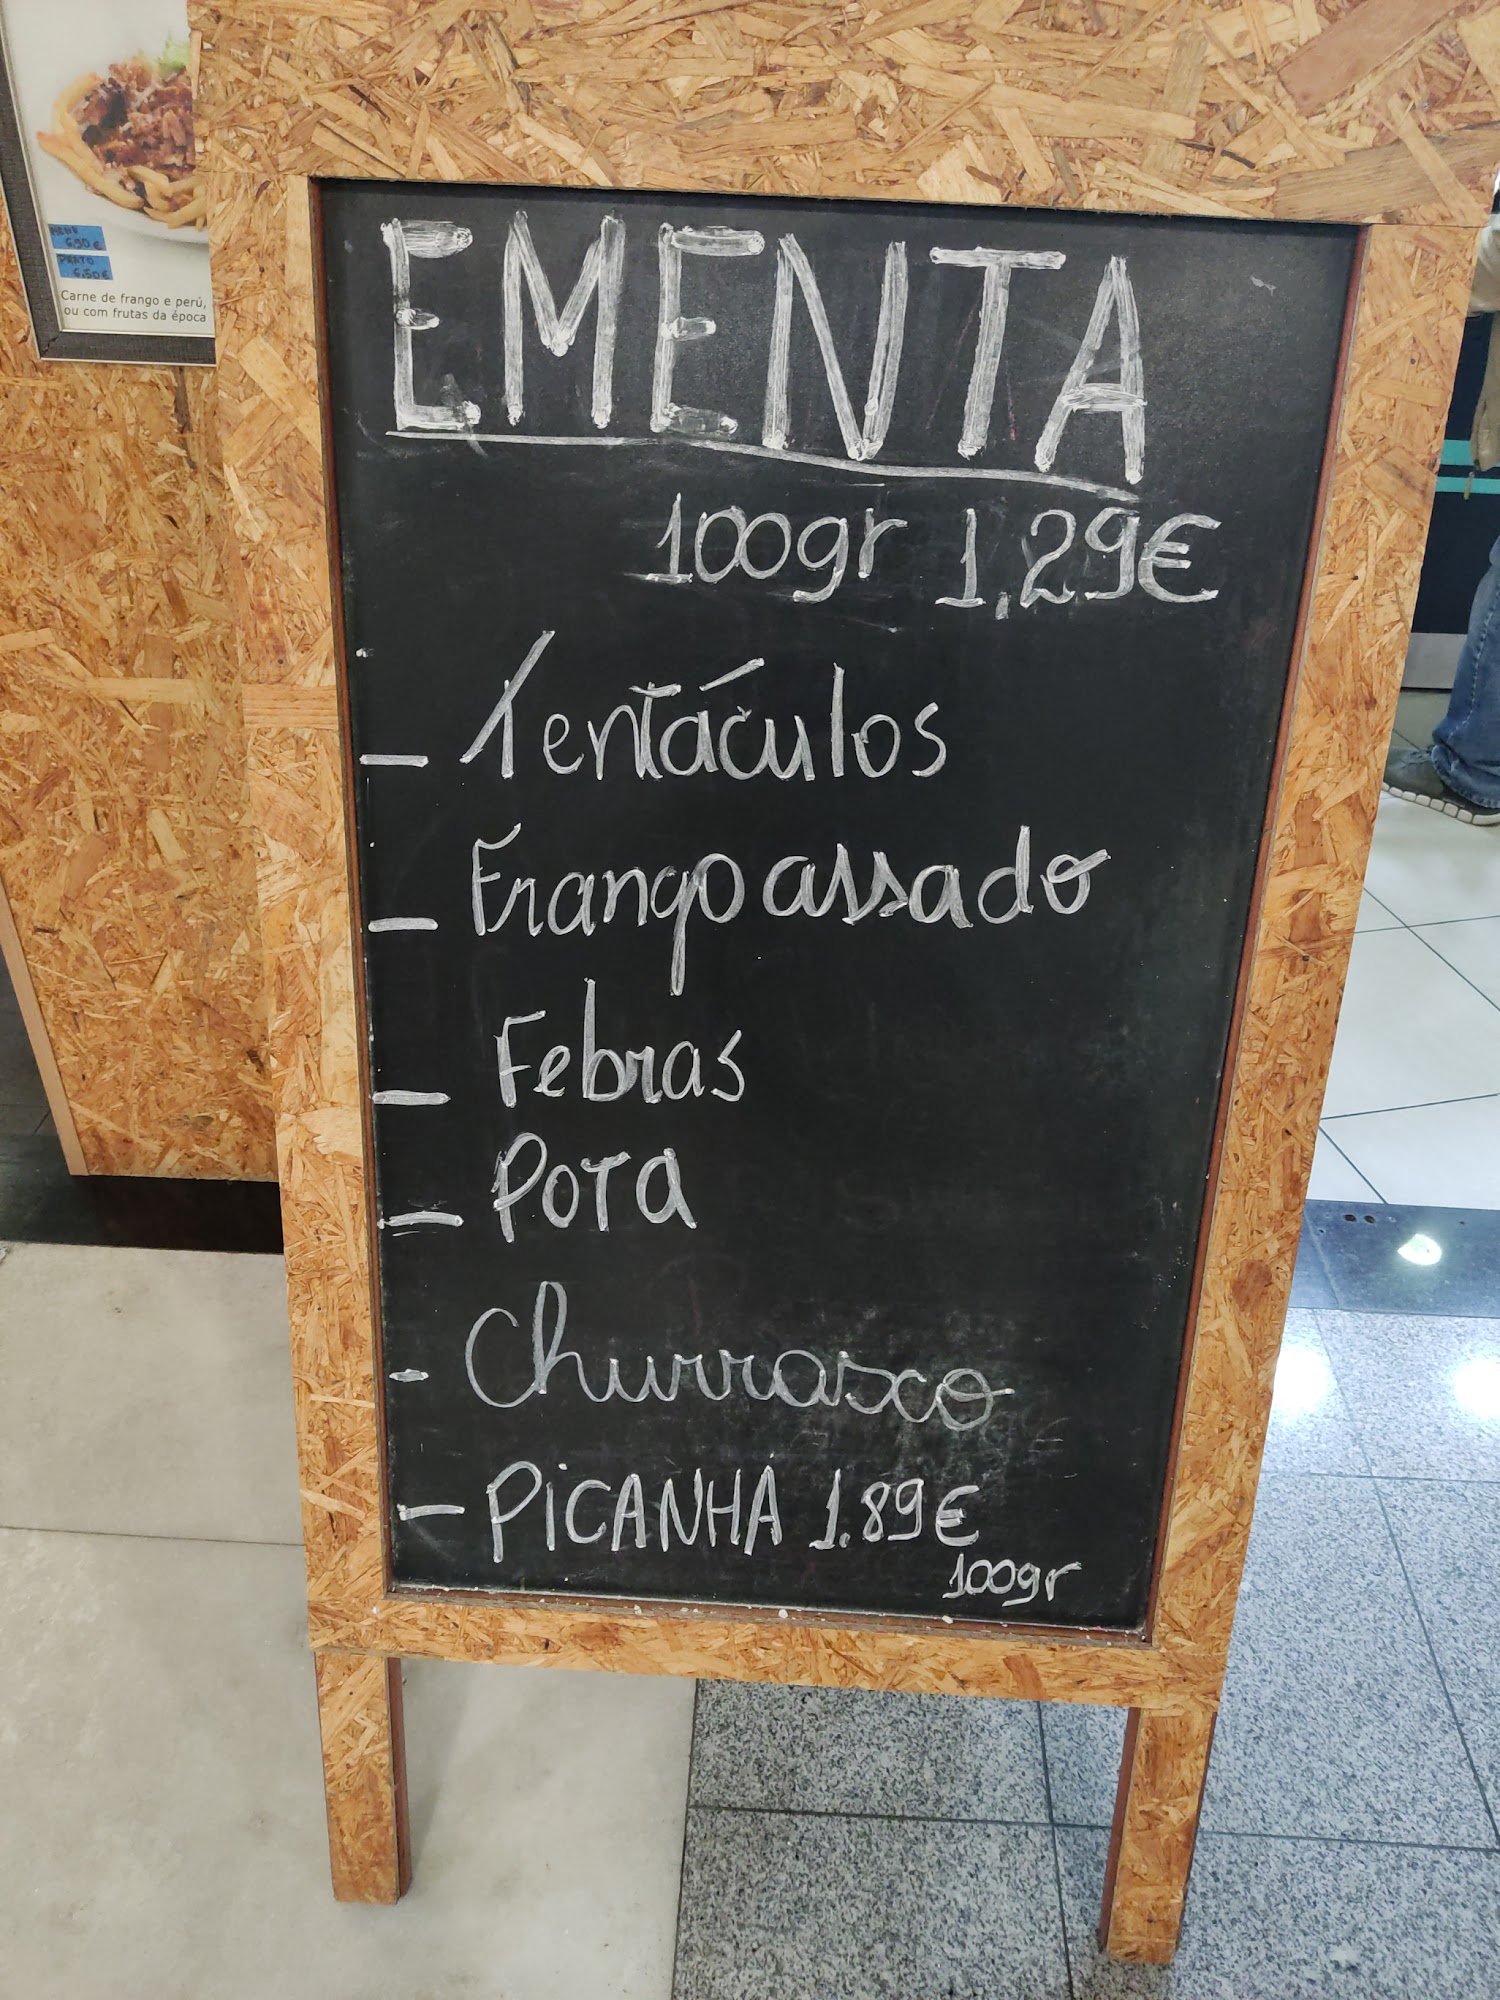 MENU
6,90€
PRATO
6,50€
Carne de frango e perú,
ou com frutas da época
EMENTA
100gr 1,29€
- Tentáculos
- Frango assado
- Febras
- Pota
- Churrasco
- PiCANHA 1.89€
100gr